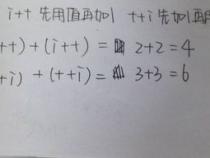 i++ 先用值再加1 ++i 先加1再
++) + (i++) = 2+2=4
+i) + (++i) = 3+3=6